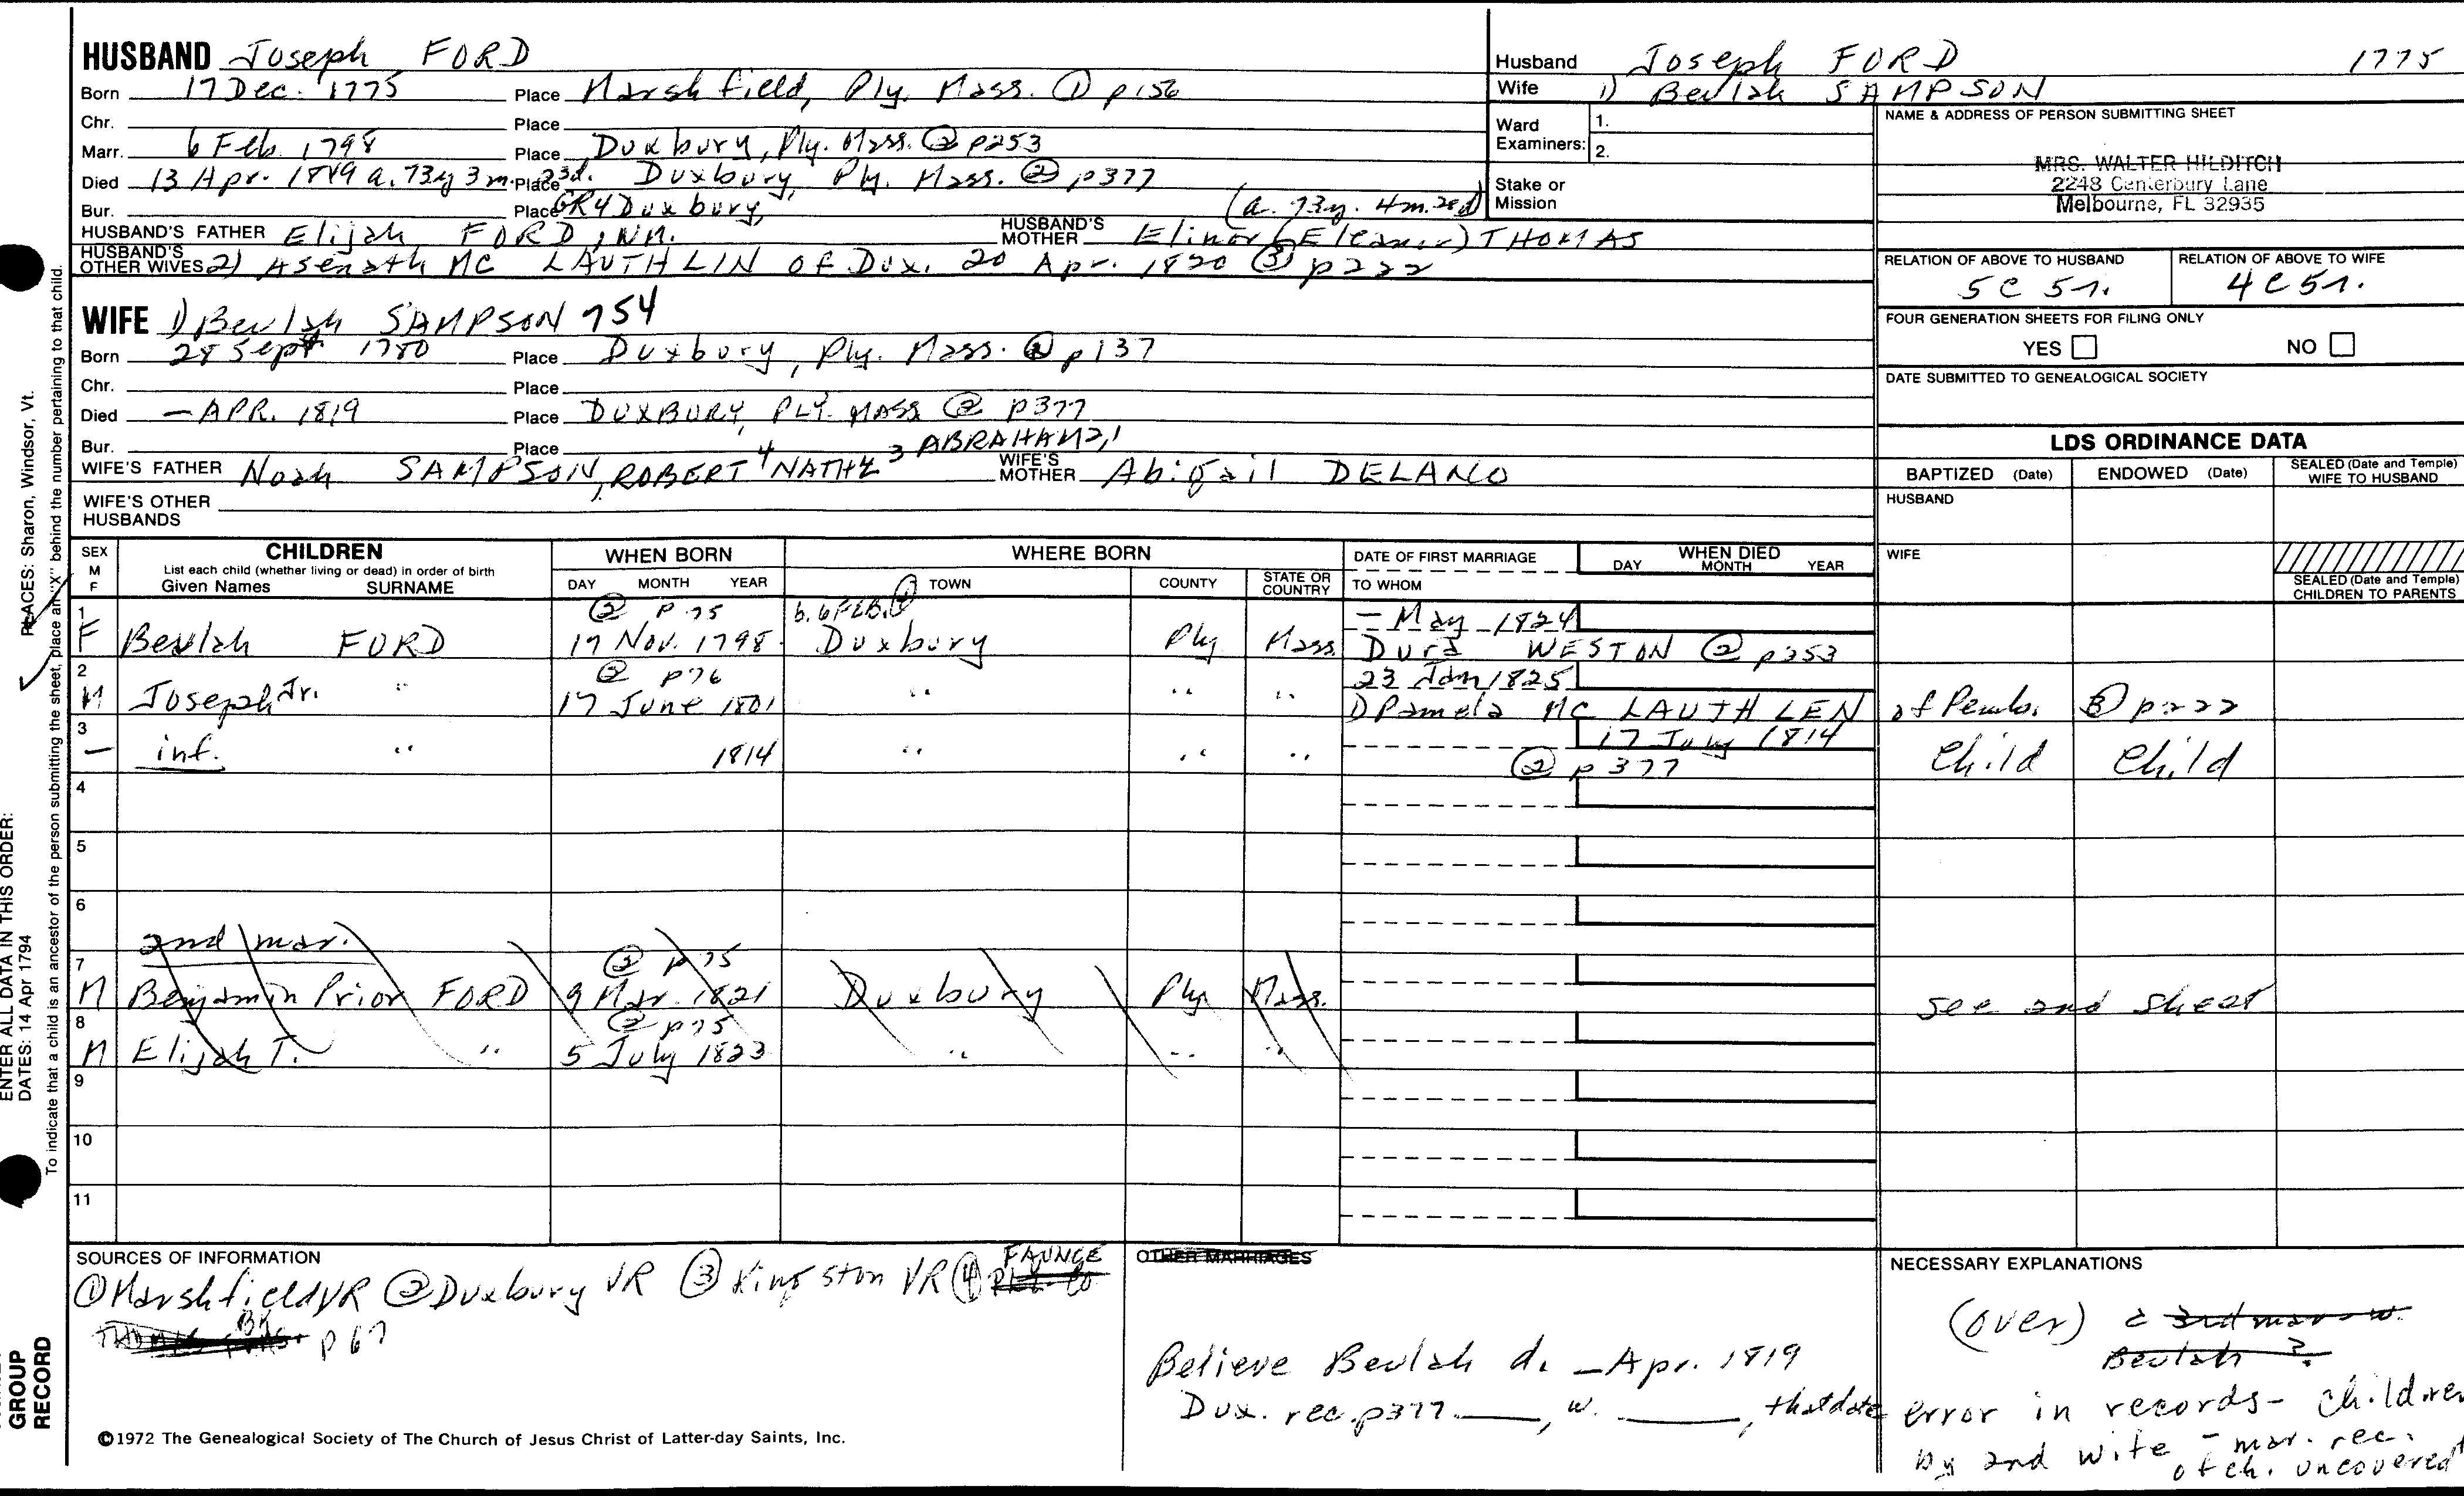 HUSBAND Joseph FORD
Born 17 Dec. 1775 Place Marshfield, Ply. Mass. ① p156
Chr. Place
Marr. 6 Feb. 1798 Place Duxbury, Ply. Mass. ② p253
Died 13 Apr. 1849 a. 73y 3m. 23d. Place Duxbury, Ply. Mass. ② p377
Bur. Place GR4 Duxbury, (a. 73y. 4m. 28d)
HUSBAND'S FATHER Elijah FORD, HUSBAND'S MOTHER Elinor (Eleanor) THOMAS
HUSBAND'S OTHER WIVES 2) Asenath MC LAUTHLIN of Dux. 20 Apr. 1820 ③ p222
WIFE 1) Beulah SAMPSON 754
Born 28 Sept 1780 Place Duxbury, Ply. Mass. ② p137
Chr. Place
Died – APR. 1819 Place DUXBURY, PLY. MASS ② p377
Bur. Place
WIFE'S FATHER Noah SAMPSON, ROBERT 4 NATHL 3 ABRAHAM 2,1 WIFE'S MOTHER Abigail DELANO
WIFE'S OTHER
HUSBANDS
Husband Joseph FORD 1775
Wife 1) Beulah SAMPSON
Ward Examiners: 1.
2.
Stake or Mission
NAME & ADDRESS OF PERSON SUBMITTING SHEET
MRS. WALTER HILDITCH
2248 Canterbury Lane
Melbourne, FL 32935
RELATION OF ABOVE TO HUSBAND RELATION OF ABOVE TO WIFE
5C 5r. 4C5r.
FOUR GENERATION SHEETS FOR FILING ONLY
YES NO
DATE SUBMITTED TO GENEALOGICAL SOCIETY
LDS ORDINANCE DATA
BAPTIZED (Date) ENDOWED (Date) SEALED (Date and Temple) WIFE TO HUSBAND
HUSBAND
WIFE
SEALED (Date and Temple) CHILDREN TO PARENTS
SEX M F CHILDREN WHEN BORN WHERE BORN DATE OF FIRST MARRIAGE WHEN DIED
List each child (whether living or dead) in order of birth
Given Names SURNAME DAY MONTH YEAR TOWN COUNTY STATE OR COUNTRY TO WHOM DAY MONTH YEAR
1 ② p 75 b. 6 FEB. ④ – May 1824
F Beulah FORD 17 Nov. 1798 Duxbury Ply Mass. Dura WESTON ② p353
2 ② p76 23 Jan 1825
M Joseph Jr. " 17 June 1801 " " " 1) Pamela MC LAUTHLEN of Pemb. ③ p222
3 17 July 1814
– inf. " 1814 " " " ② p377 Child Child
4
5
6
2nd mar.
7 ② p75
M Benjamin Prior FORD 9 Mar. 1821 Duxbury Ply Mass. see 2nd sheet
8 ② p75
M Elijah T. " 5 July 1823 " " "
9
10
11
SOURCES OF INFORMATION
① Marshfield VR ② Duxbury VR ③ Kingston VR ④ FAUNCE
BK p 67
©1972 The Genealogical Society of The Church of Jesus Christ of Latter-day Saints, Inc.
OTHER MARRIAGES
Believe Beulah d. – Apr. 1819
Dux. rec. p377. ____, w. ____, that date
NECESSARY EXPLANATIONS
(over) 3rd mar w.
Beulah ?
error in records - children
by 2nd wife - mar. rec.
of ch. uncovered
PLACES: Sharon, Windsor, Vt.
ENTER ALL DATA IN THIS ORDER:
DATES: 14 Apr 1794
To indicate that a child is an ancestor of the person submitting the sheet, place an "X" behind the number pertaining to that child.
GROUP
RECORD